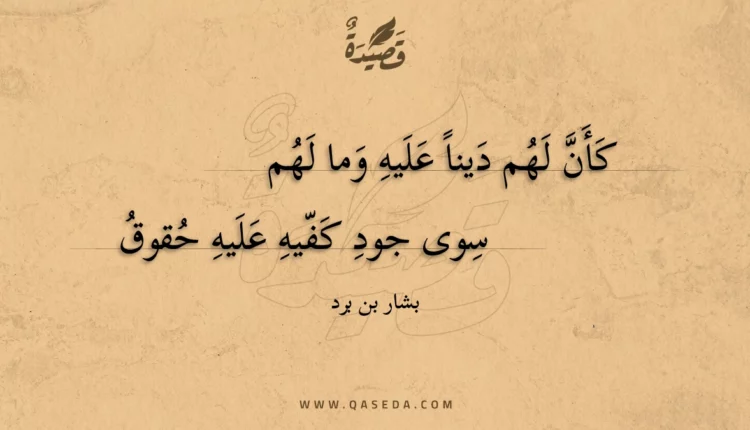 قَصِيدَةٌ
كَأَنَّ لَهُم دَيناً عَلَيهِ وَما لَهُم
سِوى جودِ كَفّيهِ عَلَيهِ حُقوقُ
بشار بن برد
WWW.QASEDA.COM